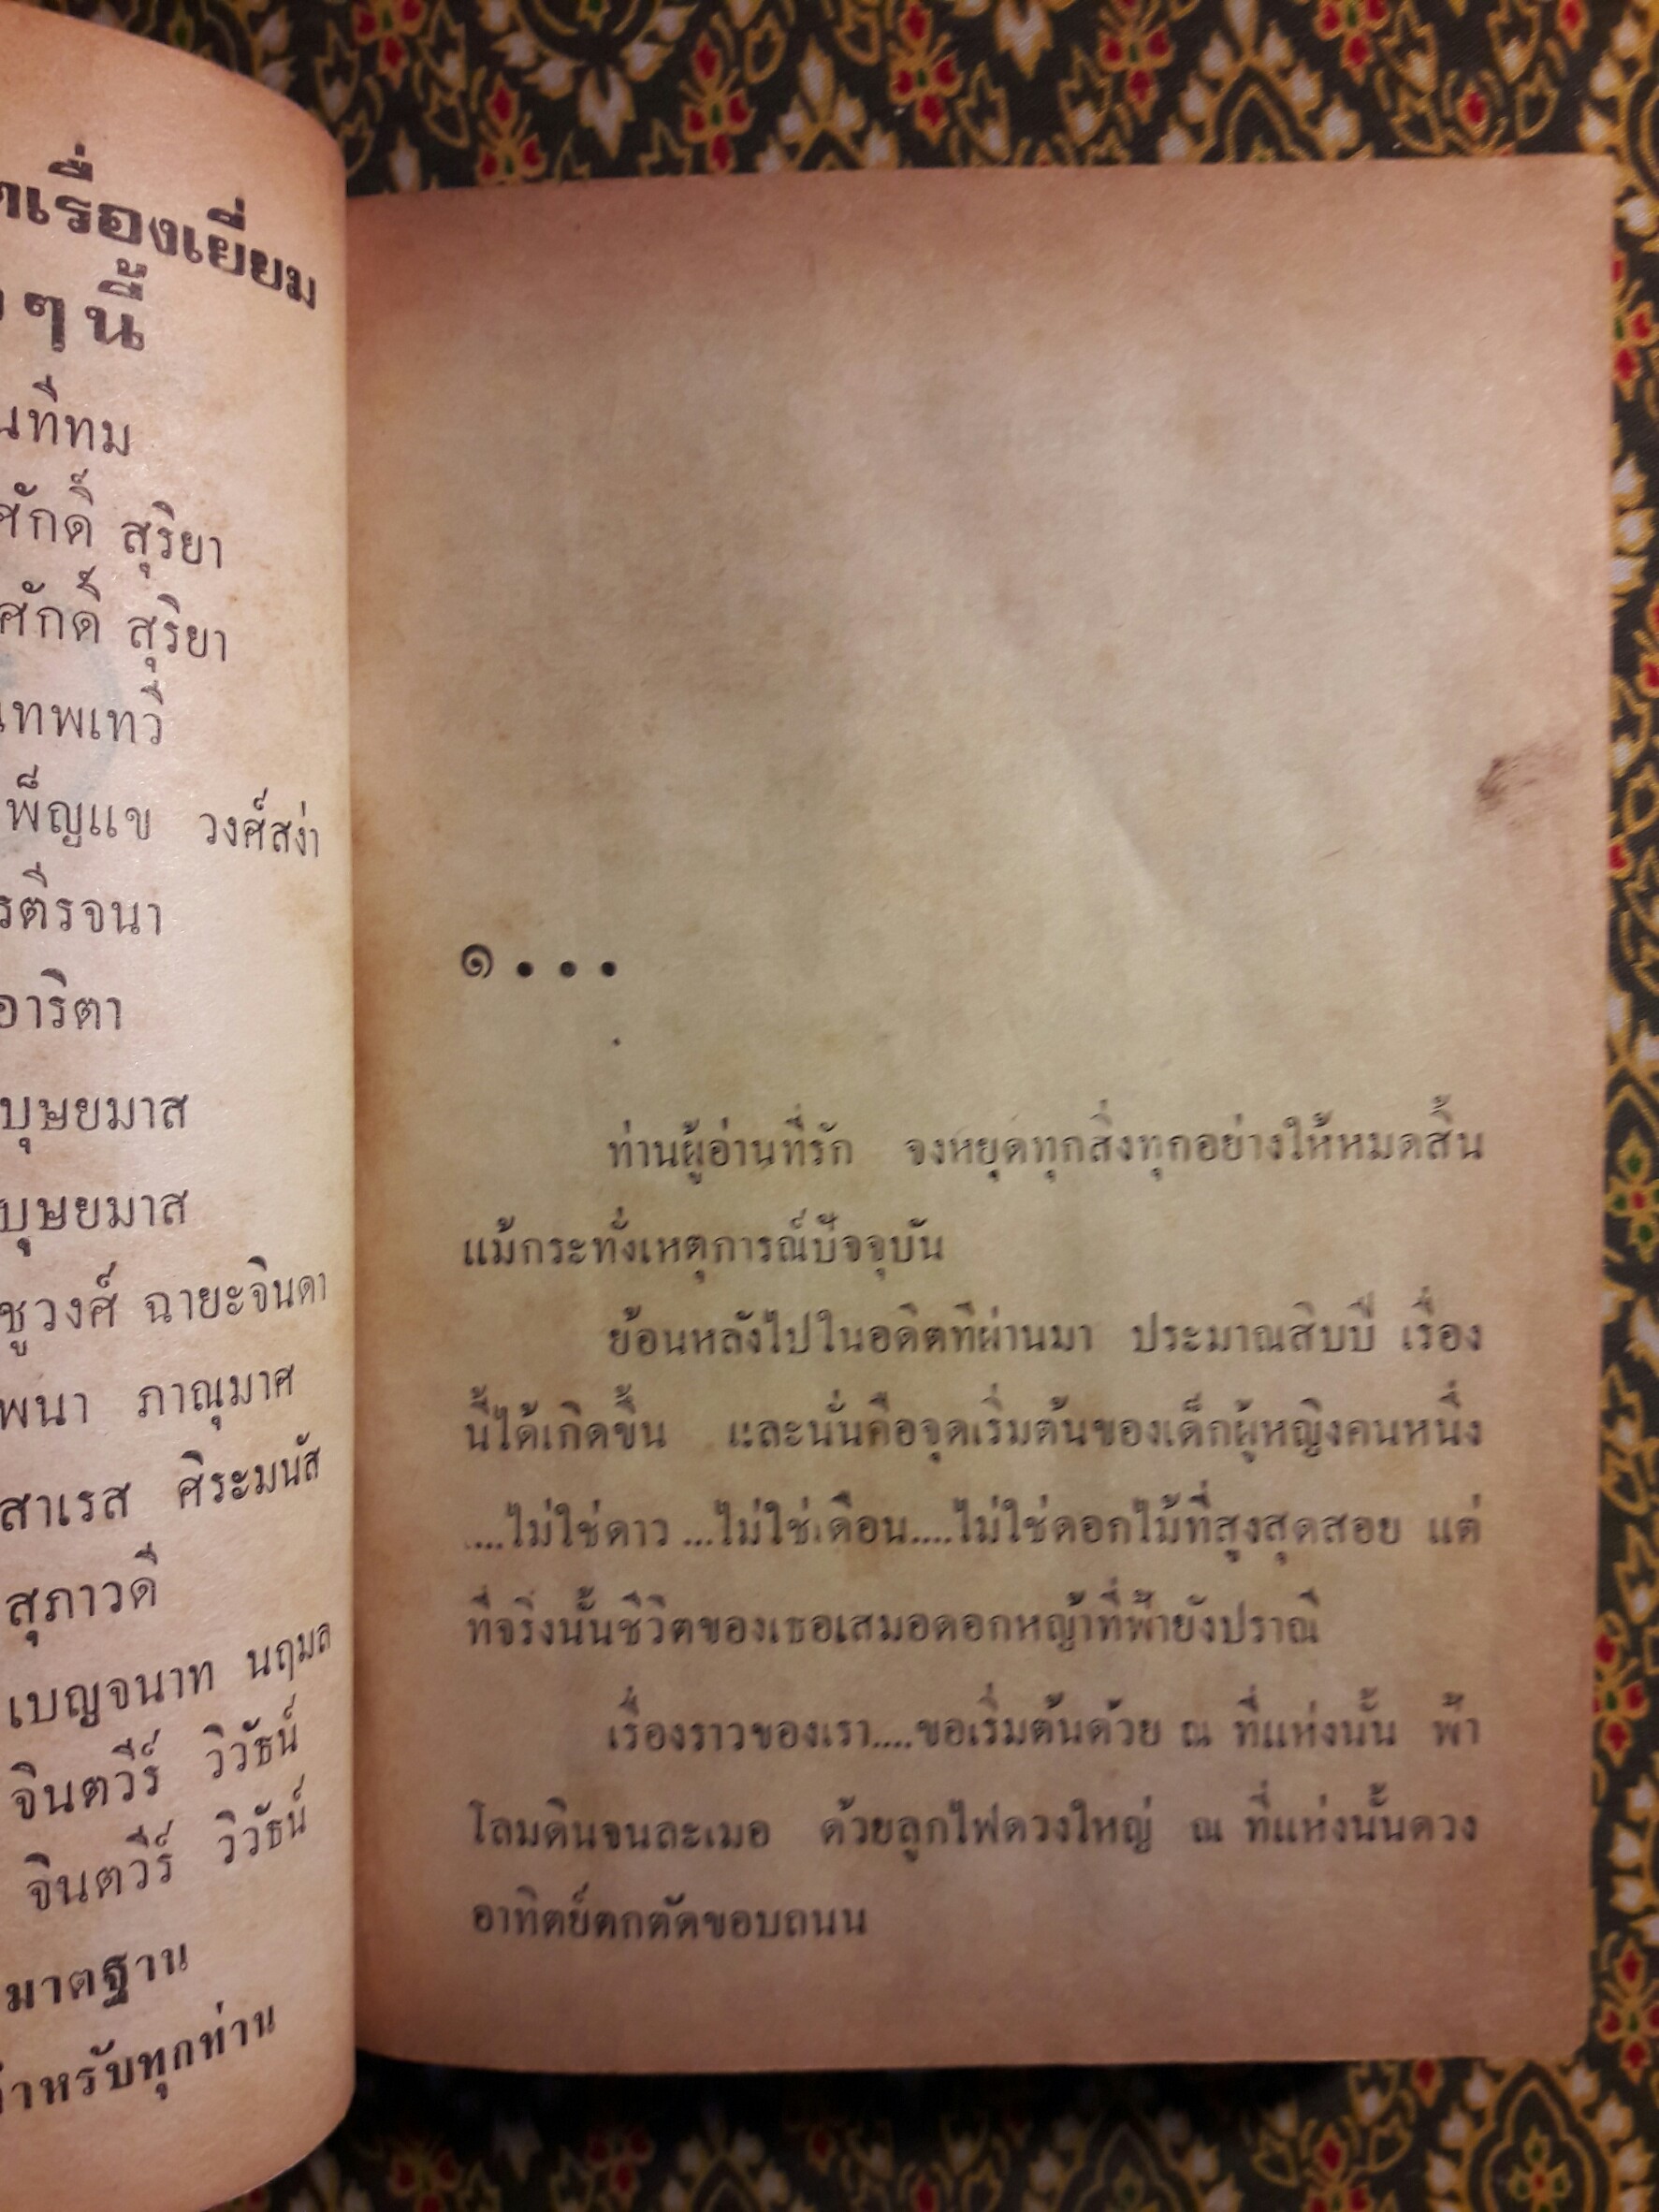 เรื่องเยี่ยม
ๆ นี้
สุริยา
สุริยา
เทพเทวี
วงศ์สง่า
อาริตา
บุษยมาส
บุษยมาส
ชูวงศ์ ฉายะจินดา
ภาณุมาศ
สาเรส ศิระมนัส
สุภาวดี
เบญจนาท นฤมล
จินตวีร์ วิวัธน์
จินตวีร์ วิวัธน์
มาตฐาน
สำหรับทุกท่าน
๑...
ท่านผู้อ่านที่รัก จงหยุดทุกสิ่งทุกอย่างให้หมดสิ้น
แม้กระทั่งเหตุการณ์ปัจจุบัน
ย้อนหลังไปในอดิตที่ผ่านมา ประมาณสิบปี เรื่อง
นี้ได้เกิดขึ้น และนั่นคือจุดเริ่มต้นของเด็กผู้หญิงคนหนึ่ง
....ไม่ใช่ดาว ...ไม่ใช่เดือน....ไม่ใช่ดอกไม้ที่สูงสุดสอย แต่
ที่จริงนั้นชีวิตของเธอเสมอดอกหญ้าที่ฟ้ายังปราณี
เรื่องราวของเรา....ขอเริ่มต้นด้วย ณ ที่แห่งนั้น ฟ้า
โลมดินจนละเมอ ด้วยลูกไฟดวงใหญ่ ณ ที่แห่งนั้นดวง
อาทิตย์ตกตัดขอบถนน